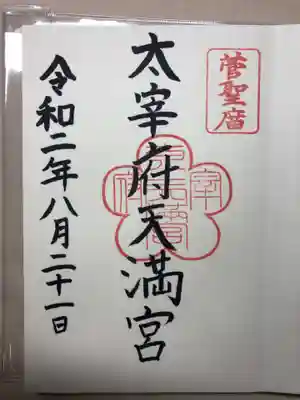 菅聖暦
太宰府天満宮
令和二年八月二十一日